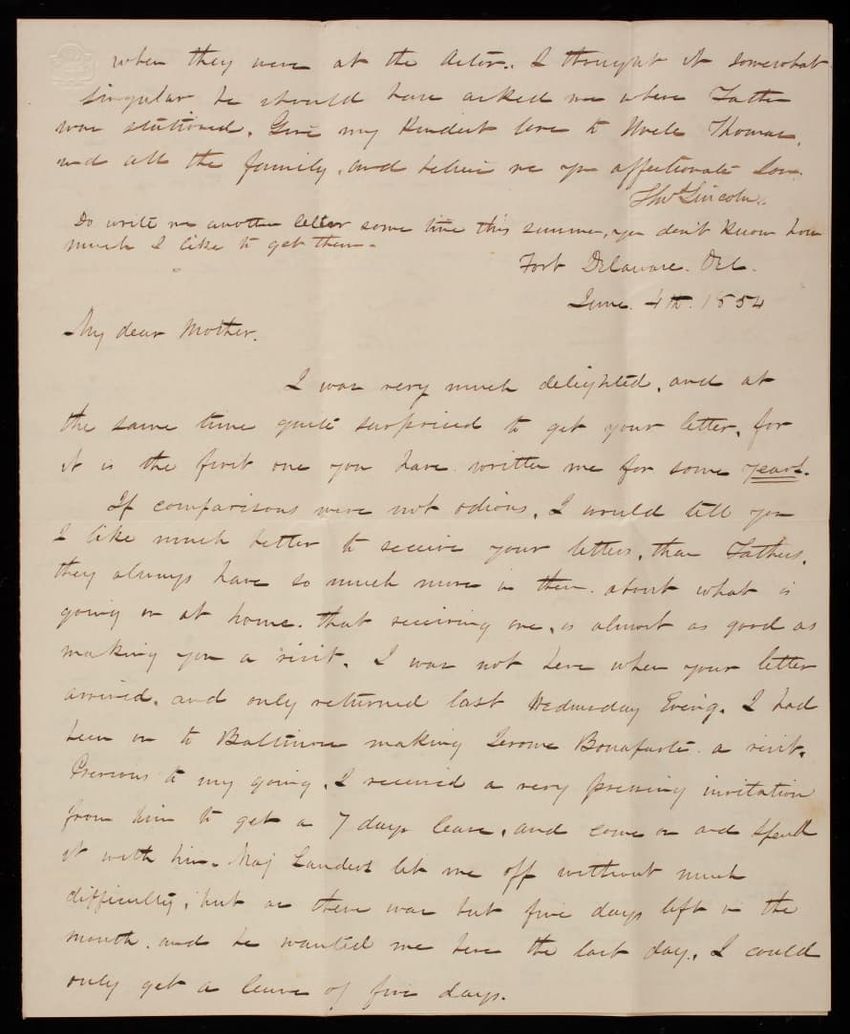 when they were at the Astor. I thought it somewhat
singular he should have asked me where Father
was stationed. Give my kindest love to Uncle Thomas,
and all the family, and believe me yr affectionate Son.
Thos Lincoln.
Do write me another letter some time this summer, you don't know how
much I like to get them.
Fort Delaware. Del.
June. 4th. 1854
My dear Mother.
I was very much delighted, and at
the same time quite surprised to get your letter, for
it is the first one you have written me for some years.
If comparisons were not odious, I would tell you
I like much better to receive your letters, than Fathers,
they always have so much more in them about what is
going on at home. that receiving one, is almost as good as
making you a visit. I was not here when your letter
arrived, and only returned last Wednesday Eveing. I had
been on to Baltimore making Jerome Bonaparte a visit.
Previous to my going, I received a very pressing invitation
from him to get a 7 days leave, and come on and spend
it with him. Maj Sanders let me off without much
difficulty, but as there was but five days left in the
month, and he wanted me here the last day, I could
only get a leave of five days.